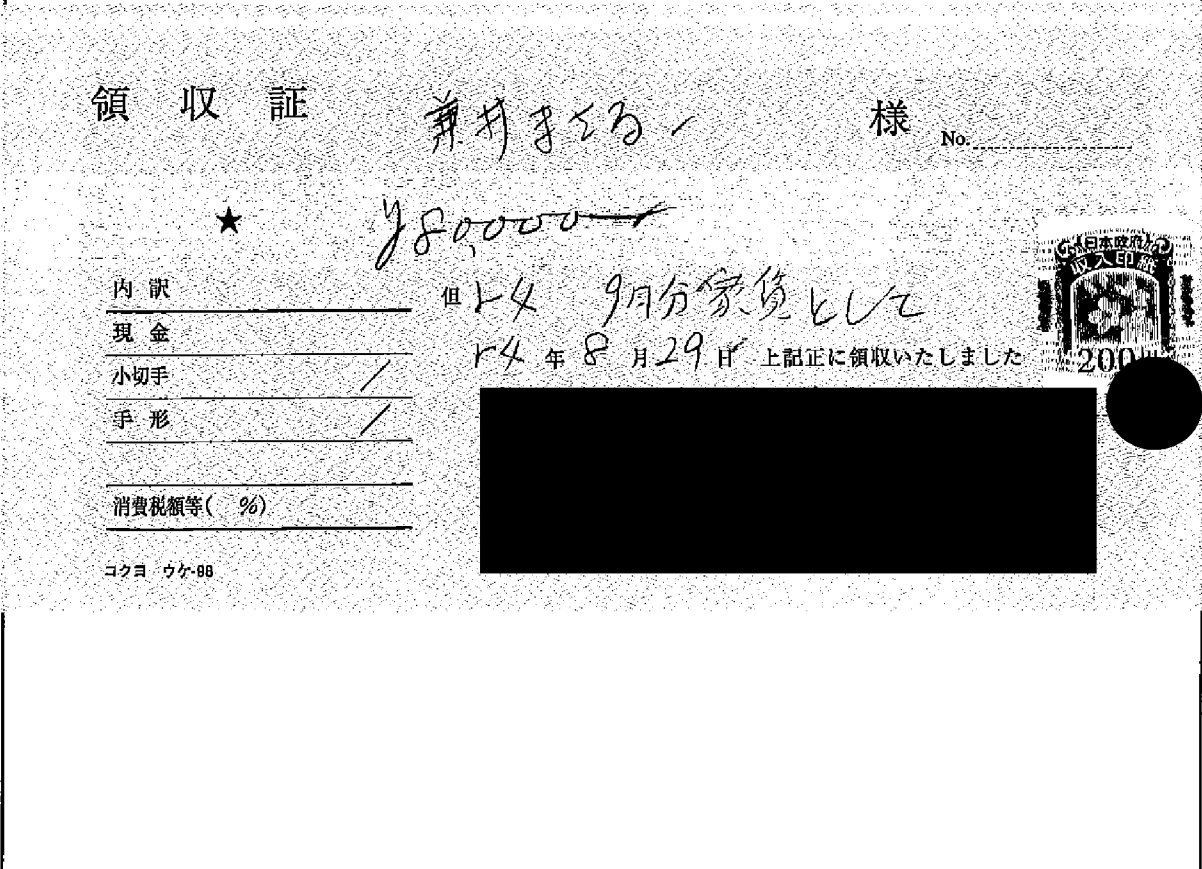 領 収 証 兼井まさる 様 No.
★ ¥80,000-
内 訳
現 金
小切手
手 形
消費税額等( %)
コクヨ ウケ-98
但 r4 9月分家賃として
r4 年 8 月 29 日 上記正に領収いたしました
日本政府
収入印紙
200